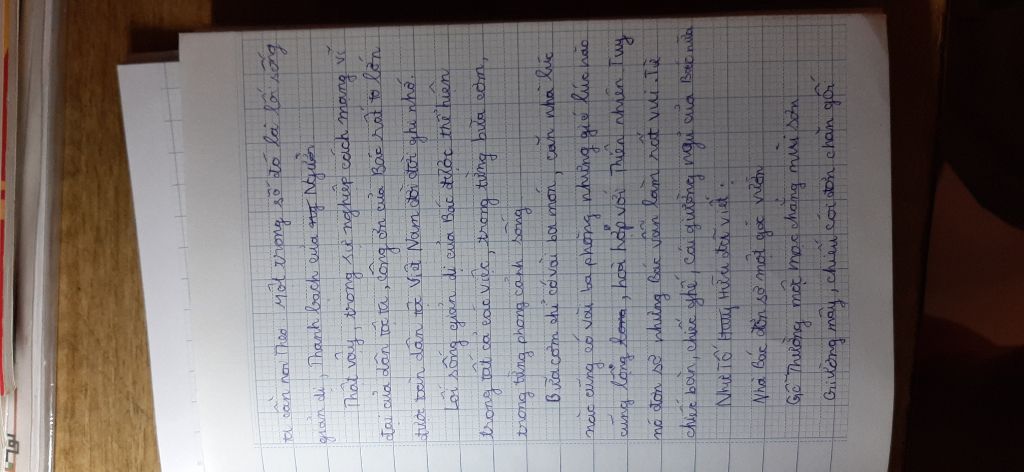 ta cần noi Theo Một trong số đó là lối sống
giản dị, Thanh bạch của Ng Người
Thật vậy, trong sự nghiệp cách mạng vĩ
đại của dân tộc ta, công ơn của Bác rất to lớn
được toàn dân tộc Việt Nam đời đời ghi nhớ.
Lối sống giản dị của Bác được thể hiện
trong tất cả các việc, trong từng bữa cơm,
trong từng phong cảnh sống
Bữa cơm chỉ có vài ba món, căn nhà lúc
nào cũng có vài ba phòng nhưng gió lúc nào
cũng lộng, hoà hợp với Thiên nhiên Tuy
nó đơn sơ nhưng Bác vẫn làm rất vui. Từ
chiếc bàn, chiếc ghế, cái giường ngủ của Bác nữa
Như Tố Hữu đã viết:
Nhà Bác đơn sơ một góc vườn
Gỗ Thường mộc mạc chẳng mùi sơn
Giường mây, chiếu cói đơn chăn gối